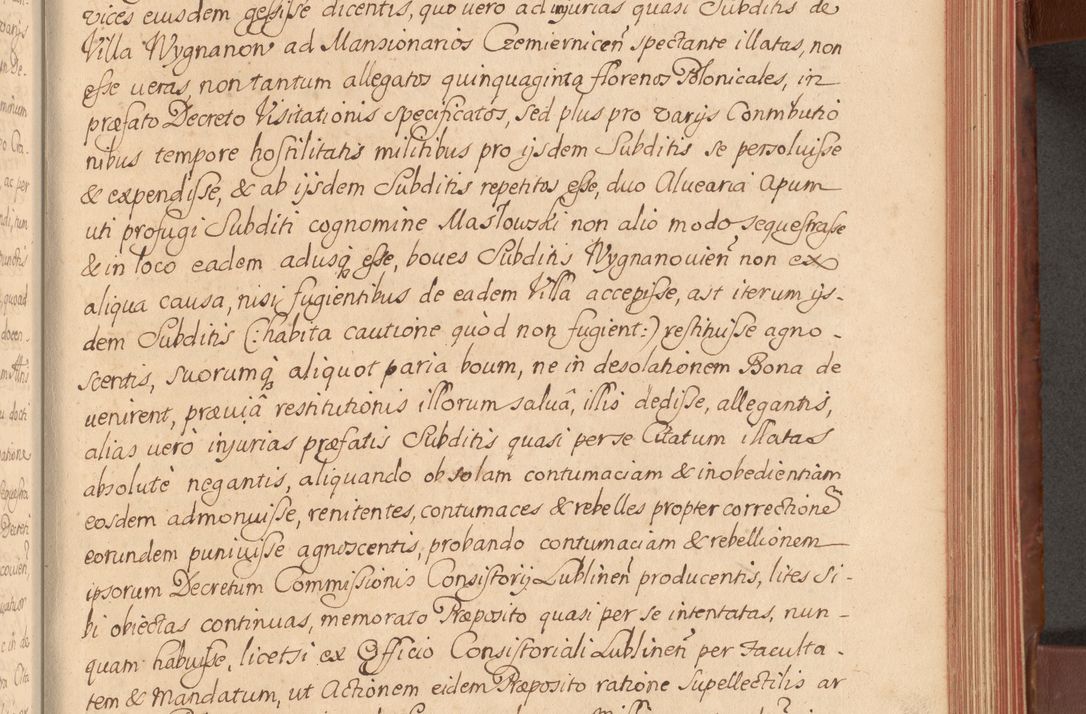 vices eiusdem gessisse dicentis, quo vero ad injurias quasi Subditis de
Villa Wygnanow ad Mansionarios Czemiernicen̄ spectante illatas, non
esse veras, non tantum allegatos quinquaginta florenos Polonicales, in
præfato Decreto Visitationis specificatos, sed plus pro varijs Conributio
nibus tempore hostilitatis militibus pro ijsdem Subditis se persoluisse
& expendisse, & ab ijsdem Subditis repetitos esse, duo Aluearia Apum
uti profugi Subditi cognomine Masłowski non alio modo sequestrasse
& in loco eadem adusq esse, boves Subditis Wygnanovien̄ non ex
aliqua causa, nisi fugientibus de eadem Villa accepisse, ast iterum ijs-
dem Subditis (: habita cautione quòd non fugient :) restituisse agno-
scentis, suorumq aliquot paria boum, ne in desolationem Bona de
venirent, præviâ restitutionis illorum salvâ, illis dedisse, allegantis,
alias verò injurias præfatis Subditis quasi per se Citatum illatas
absolutè negantis, aliquando ob solam contumaciam & inobedientiam
eosdem admonuisse, renitentes, contumaces & rebelles propter correctionē
eorundem puniuisse agnoscentis, probando contumaciam & rebellionem
ipsorum Decretum Commissionis Consistorij Lublinen̄ producentis, lites si-
bi obiectas continuas, memorato Præposito quasi per se intentatas, nun-
quam habuisse, licetsi ex Officio Consistoriali Lublinen̄ per Faculta-
tem & Mandatum, ut Actionem eidem Præposito ratione Supellectilis ar